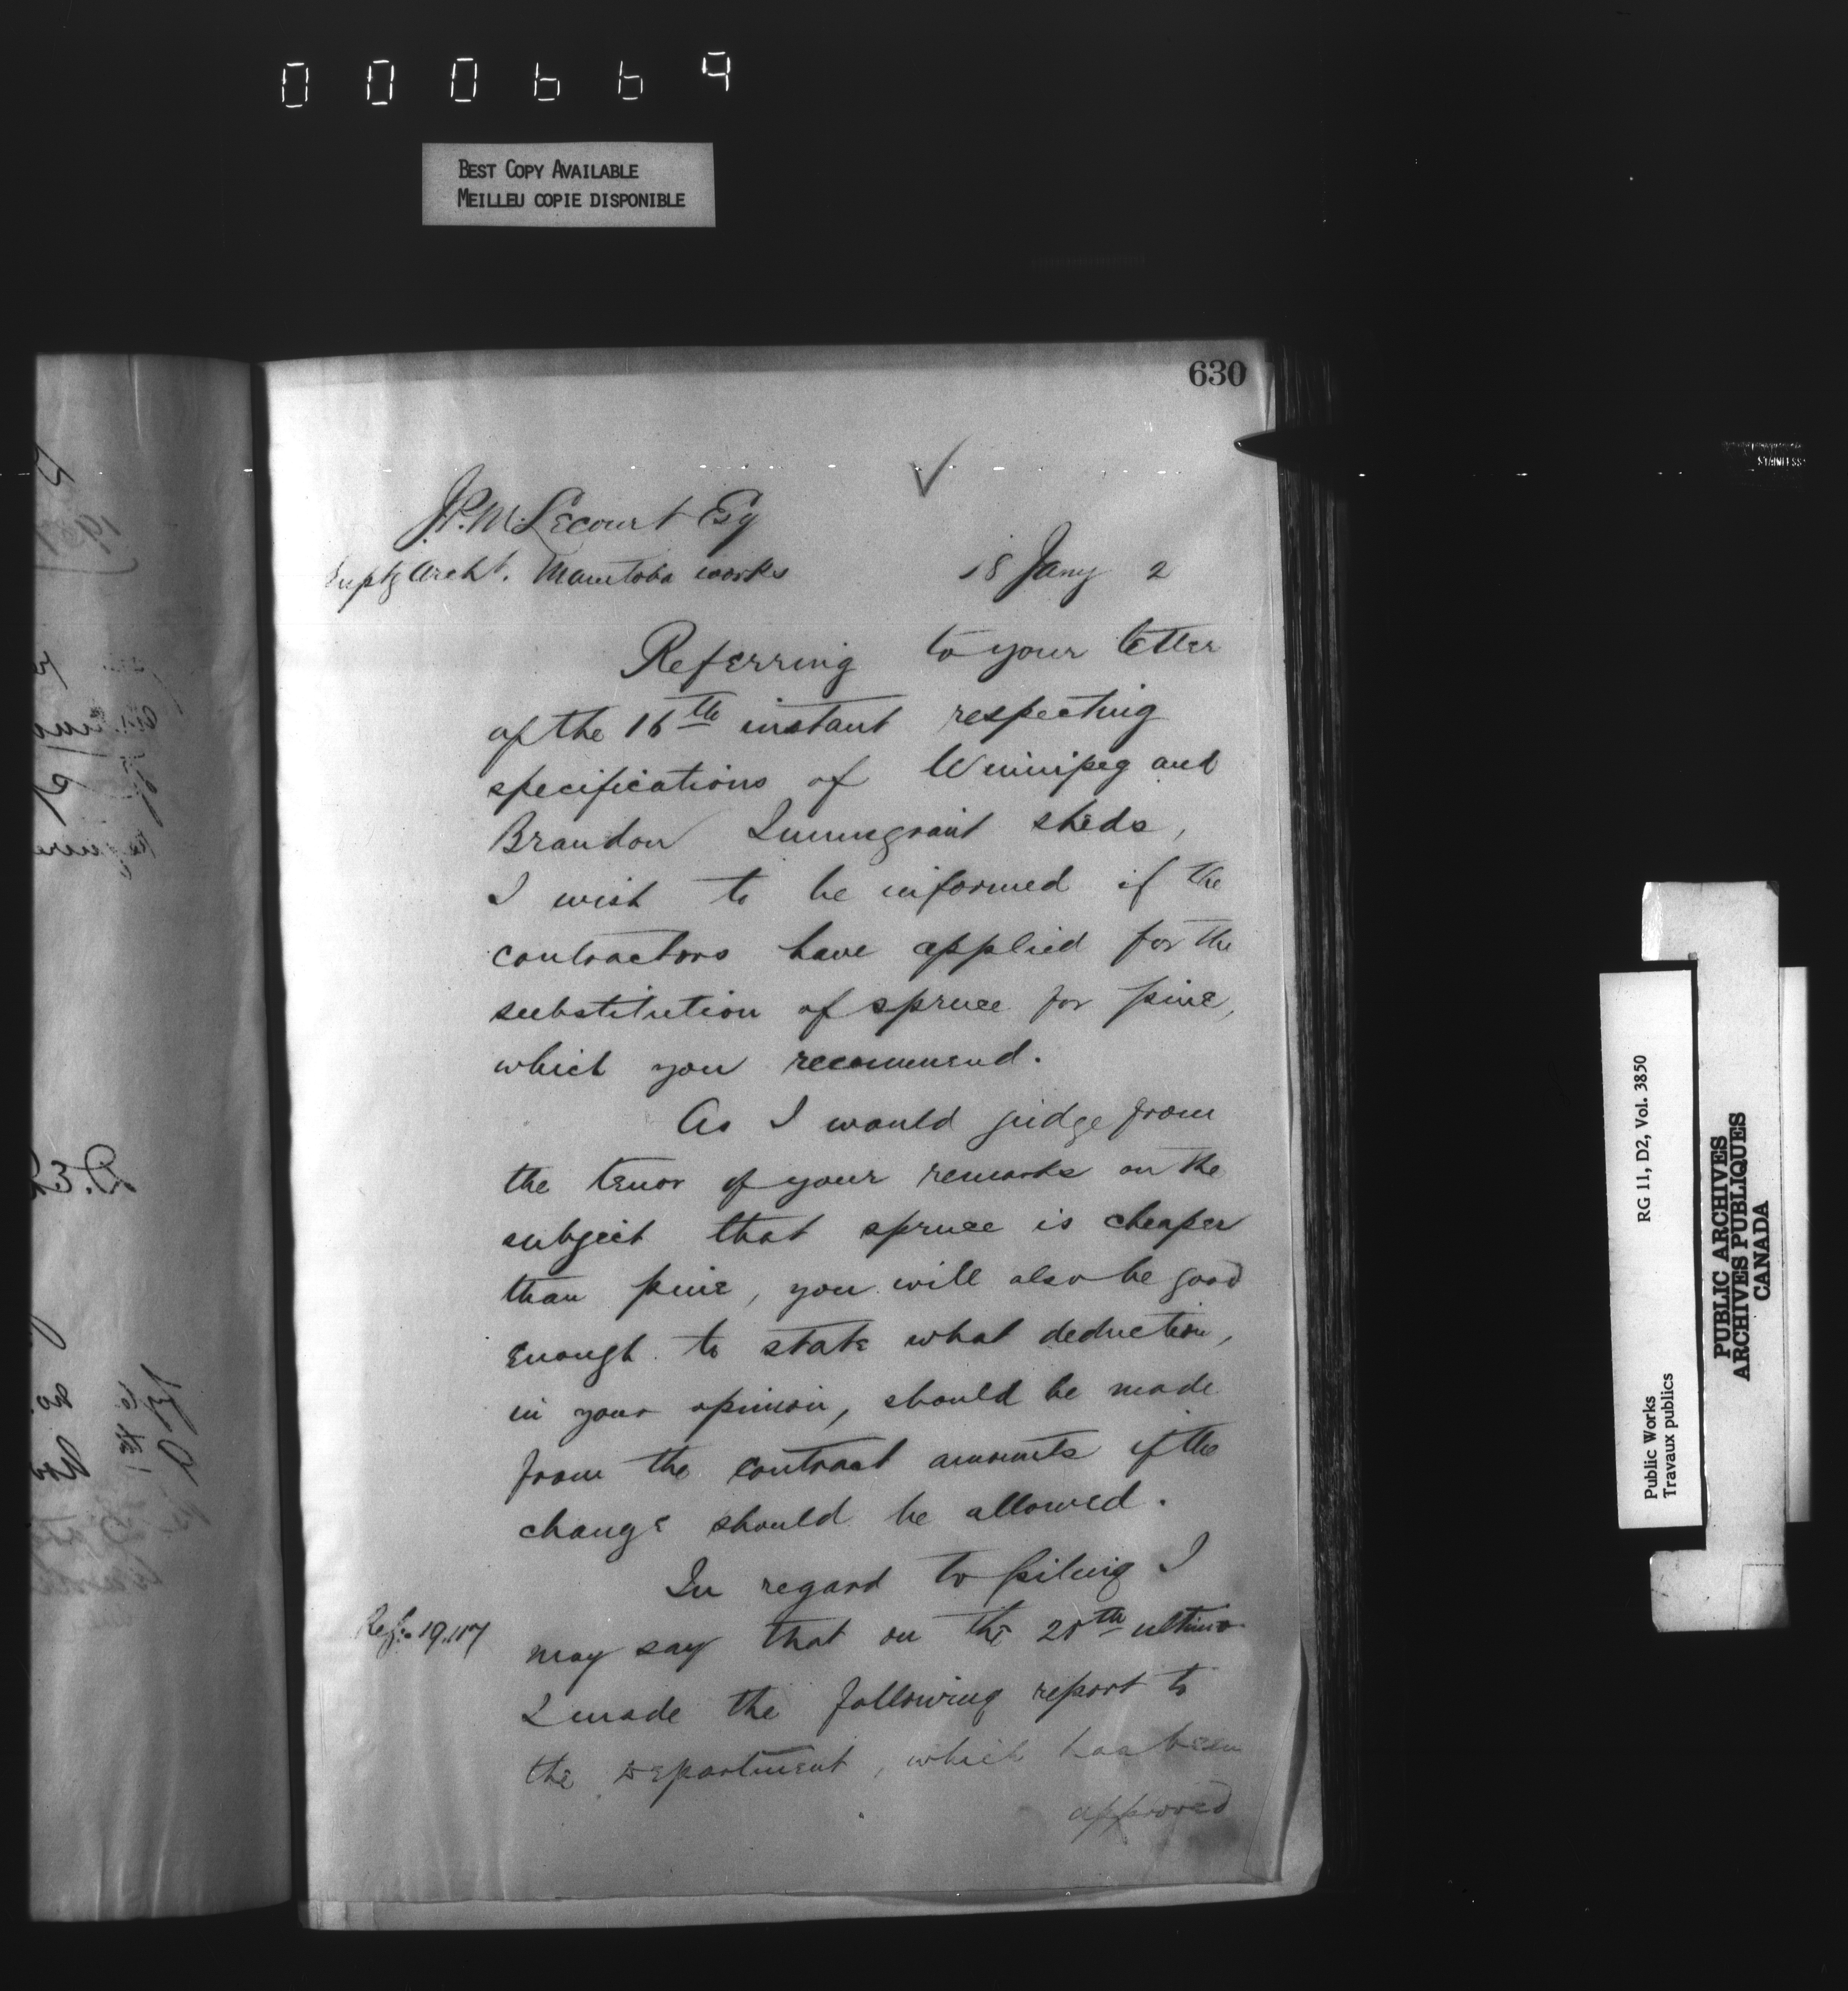 000669
BEST COPY AVAILABLE
MEILLEU COPIE DISPONIBLE
630
J.P.M. Lecourt Esq
Suptg Archt. Manitoba works 18 Jany 2
Referring to your letter
of the 16th instant respecting
specifications of Winnipeg and
Brandon Immigrant sheds,
I wish to be informed if the
contractors have applied for the
substitution of spruce for pine,
which you recommend.
As I would judge from
the tenor of your remarks on the
subject that spruce is cheaper
than pine, you will also be good
enough to state what deduction,
in your opinion, should be made
from the contract amounts if the
change should be allowed.
In regard to piling I
Ref: 19.117 may say that on the 28th ultimo
I made the following report to
the Department, which has been
approved
STAINLESS
RG 11, D2, Vol. 3850
Public Works
Travaux publics
PUBLIC ARCHIVES
ARCHIVES PUBLIQUES
CANADA